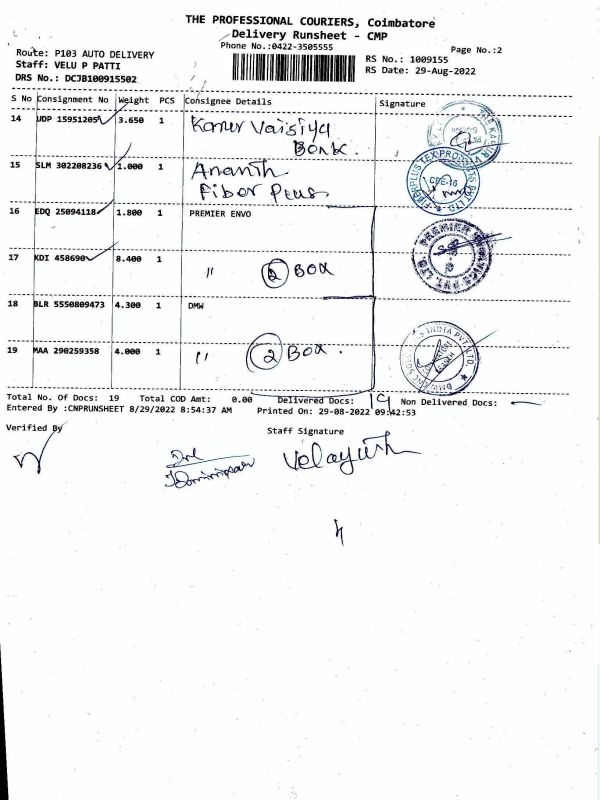 THE PROFESSIONAL COURIERS, Coimbatore
Delivery Runsheet - CMP
Phone No.:0422-3505555
Page No.:2
Route: P103 AUTO DELIVERY
Staff: VELU P PATTI
DRS No.: DCJB100915502
RS No.: 1009155
RS Date: 29-Aug-2022
S No Consignment No Weight PCS Consignee Details Signature
14 UDP 15951205 3.650 1 Karur Vaisiya
Bank.
15 SLM 302208236 1.000 1 Ananth
Fiber Plus
FIBRPLUS TEX PRODUCTS PVT LTD
CBE-18
16 EDQ 25094118 1.800 1 PREMIER ENVO
17 KDI 458690 8.400 1 〃 2 Box
PREMIER
PVT. LTD.
18 BLR 5550809473 4.300 1 DMW
19 MAA 290259358 4.000 1 〃 2 Box.
INDIA PVT. LTD.
Total No. Of Docs: 19 Total COD Amt: 0.00 Delivered Docs: 19 Non Delivered Docs: —
Entered By :CNPRUNSHEET 8/29/2022 8:54:37 AM Printed On: 29-08-2022 09:42:53
Verified By
Staff Signature
Velayuth